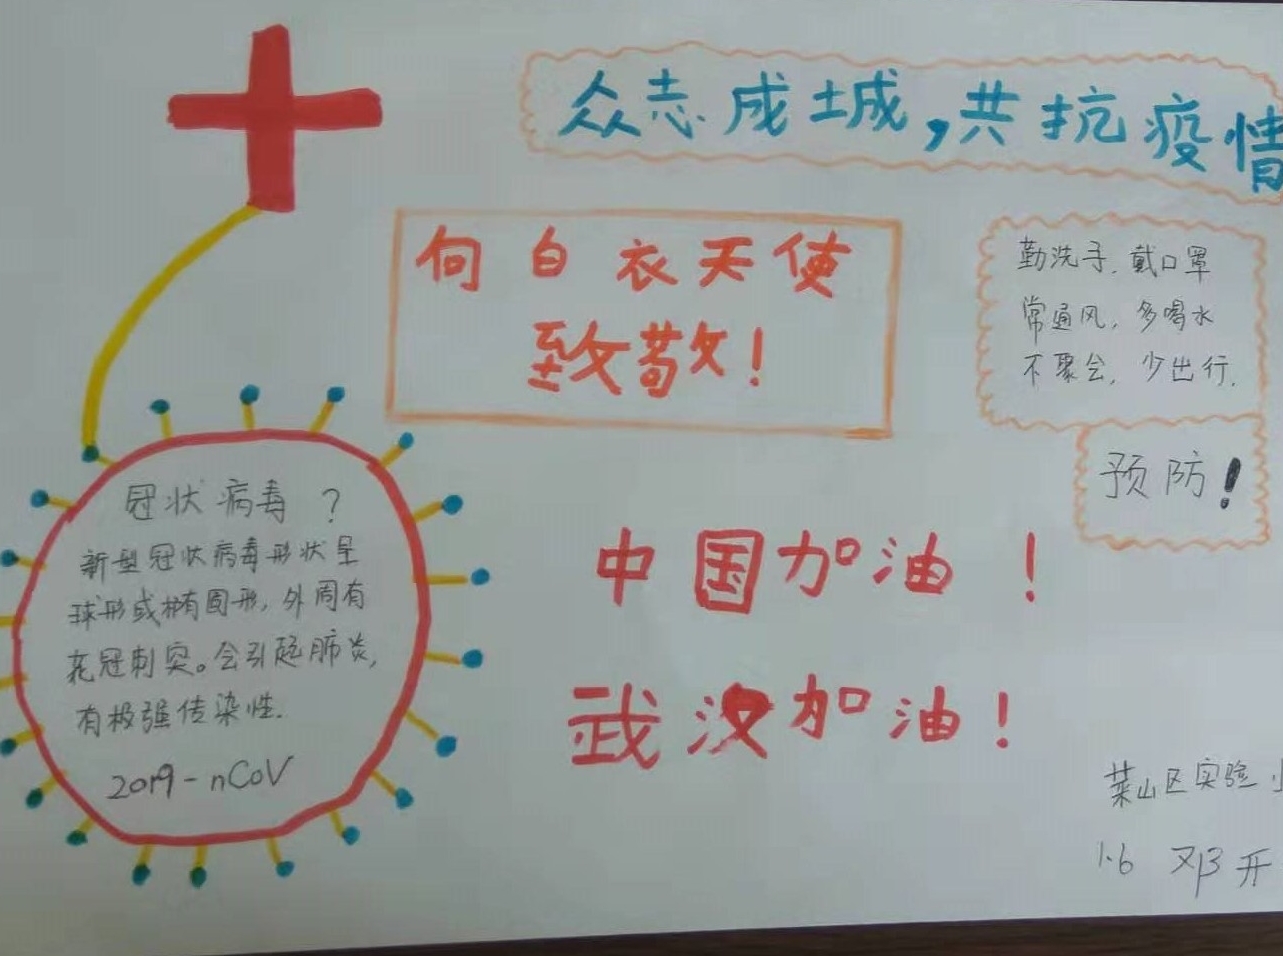 众志成城,共抗疫情
向白衣天使
致敬!
勤洗手.戴口罩
常通风,多喝水
不聚会,少出行.
预防!
冠状病毒?
新型冠状病毒形状呈
球形或椭圆形,外周有
花冠刺突。会引起肺炎,
有极强传染性.
2019-nCoV
中国加油!
武汉加油!
莱山区实验小
1.6 邓开